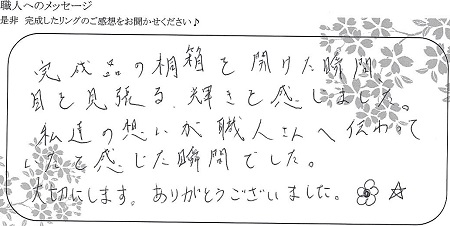 職人へのメッセージ
是非 完成したリングのご感想をお聞かせください♪
完成品の桐箱を開けた瞬間、
目を見張る、輝きを感じました。
私達の想いが職人さんへ伝わって
いたと感じた瞬間でした。
大切にします。ありがとうございました。